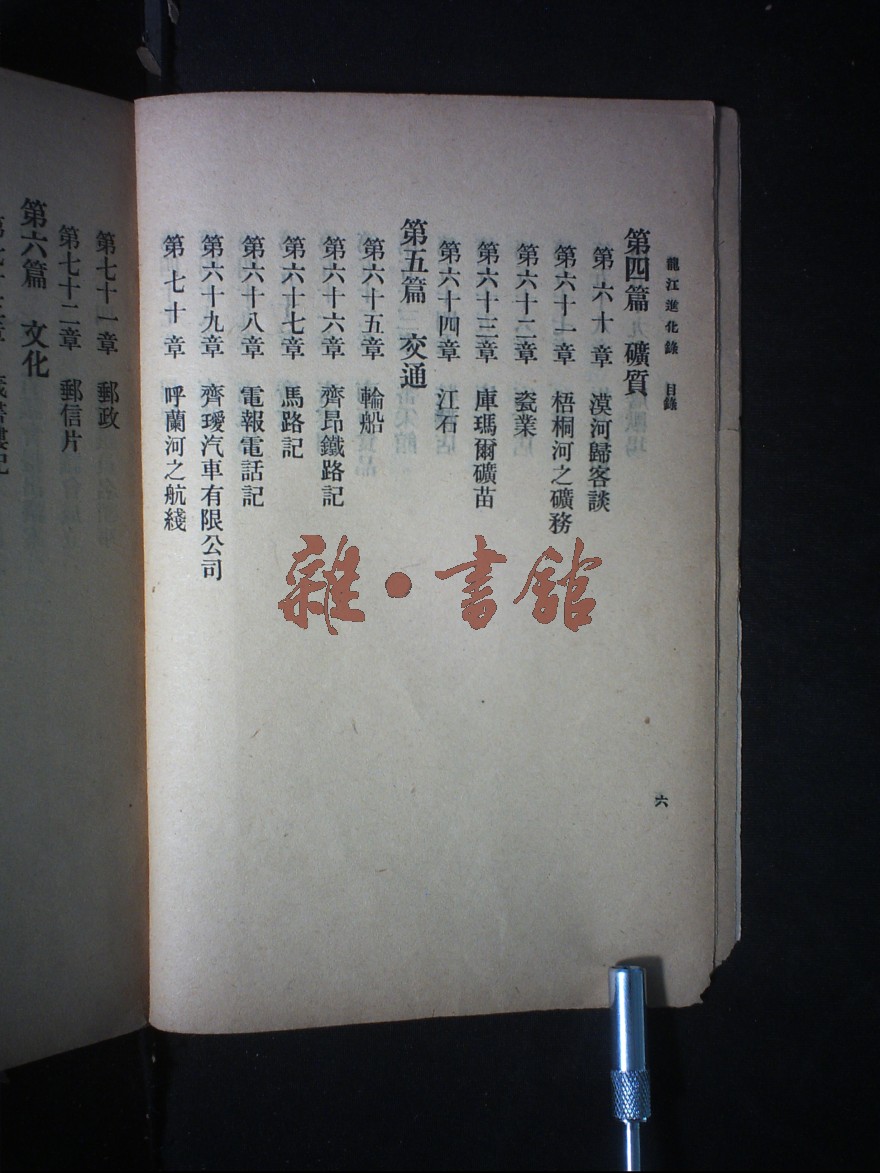 龍江進化錄 目錄
第四篇 礦質
第六十章 漠河歸客談
第六十一章 梧桐河之礦務
第六十二章 瓷業
第六十三章 庫瑪爾礦苗
第六十四章 江石
第五篇 交通
第六十五章 輪船
第六十六章 齊昂鐵路記
第六十七章 馬路記
第六十八章 電報電話記
第六十九章 齊璦汽車有限公司
第七十章 呼蘭河之航綫
六
雜·書館
第七十一章 郵政
第七十二章 郵信片
第六篇 文化